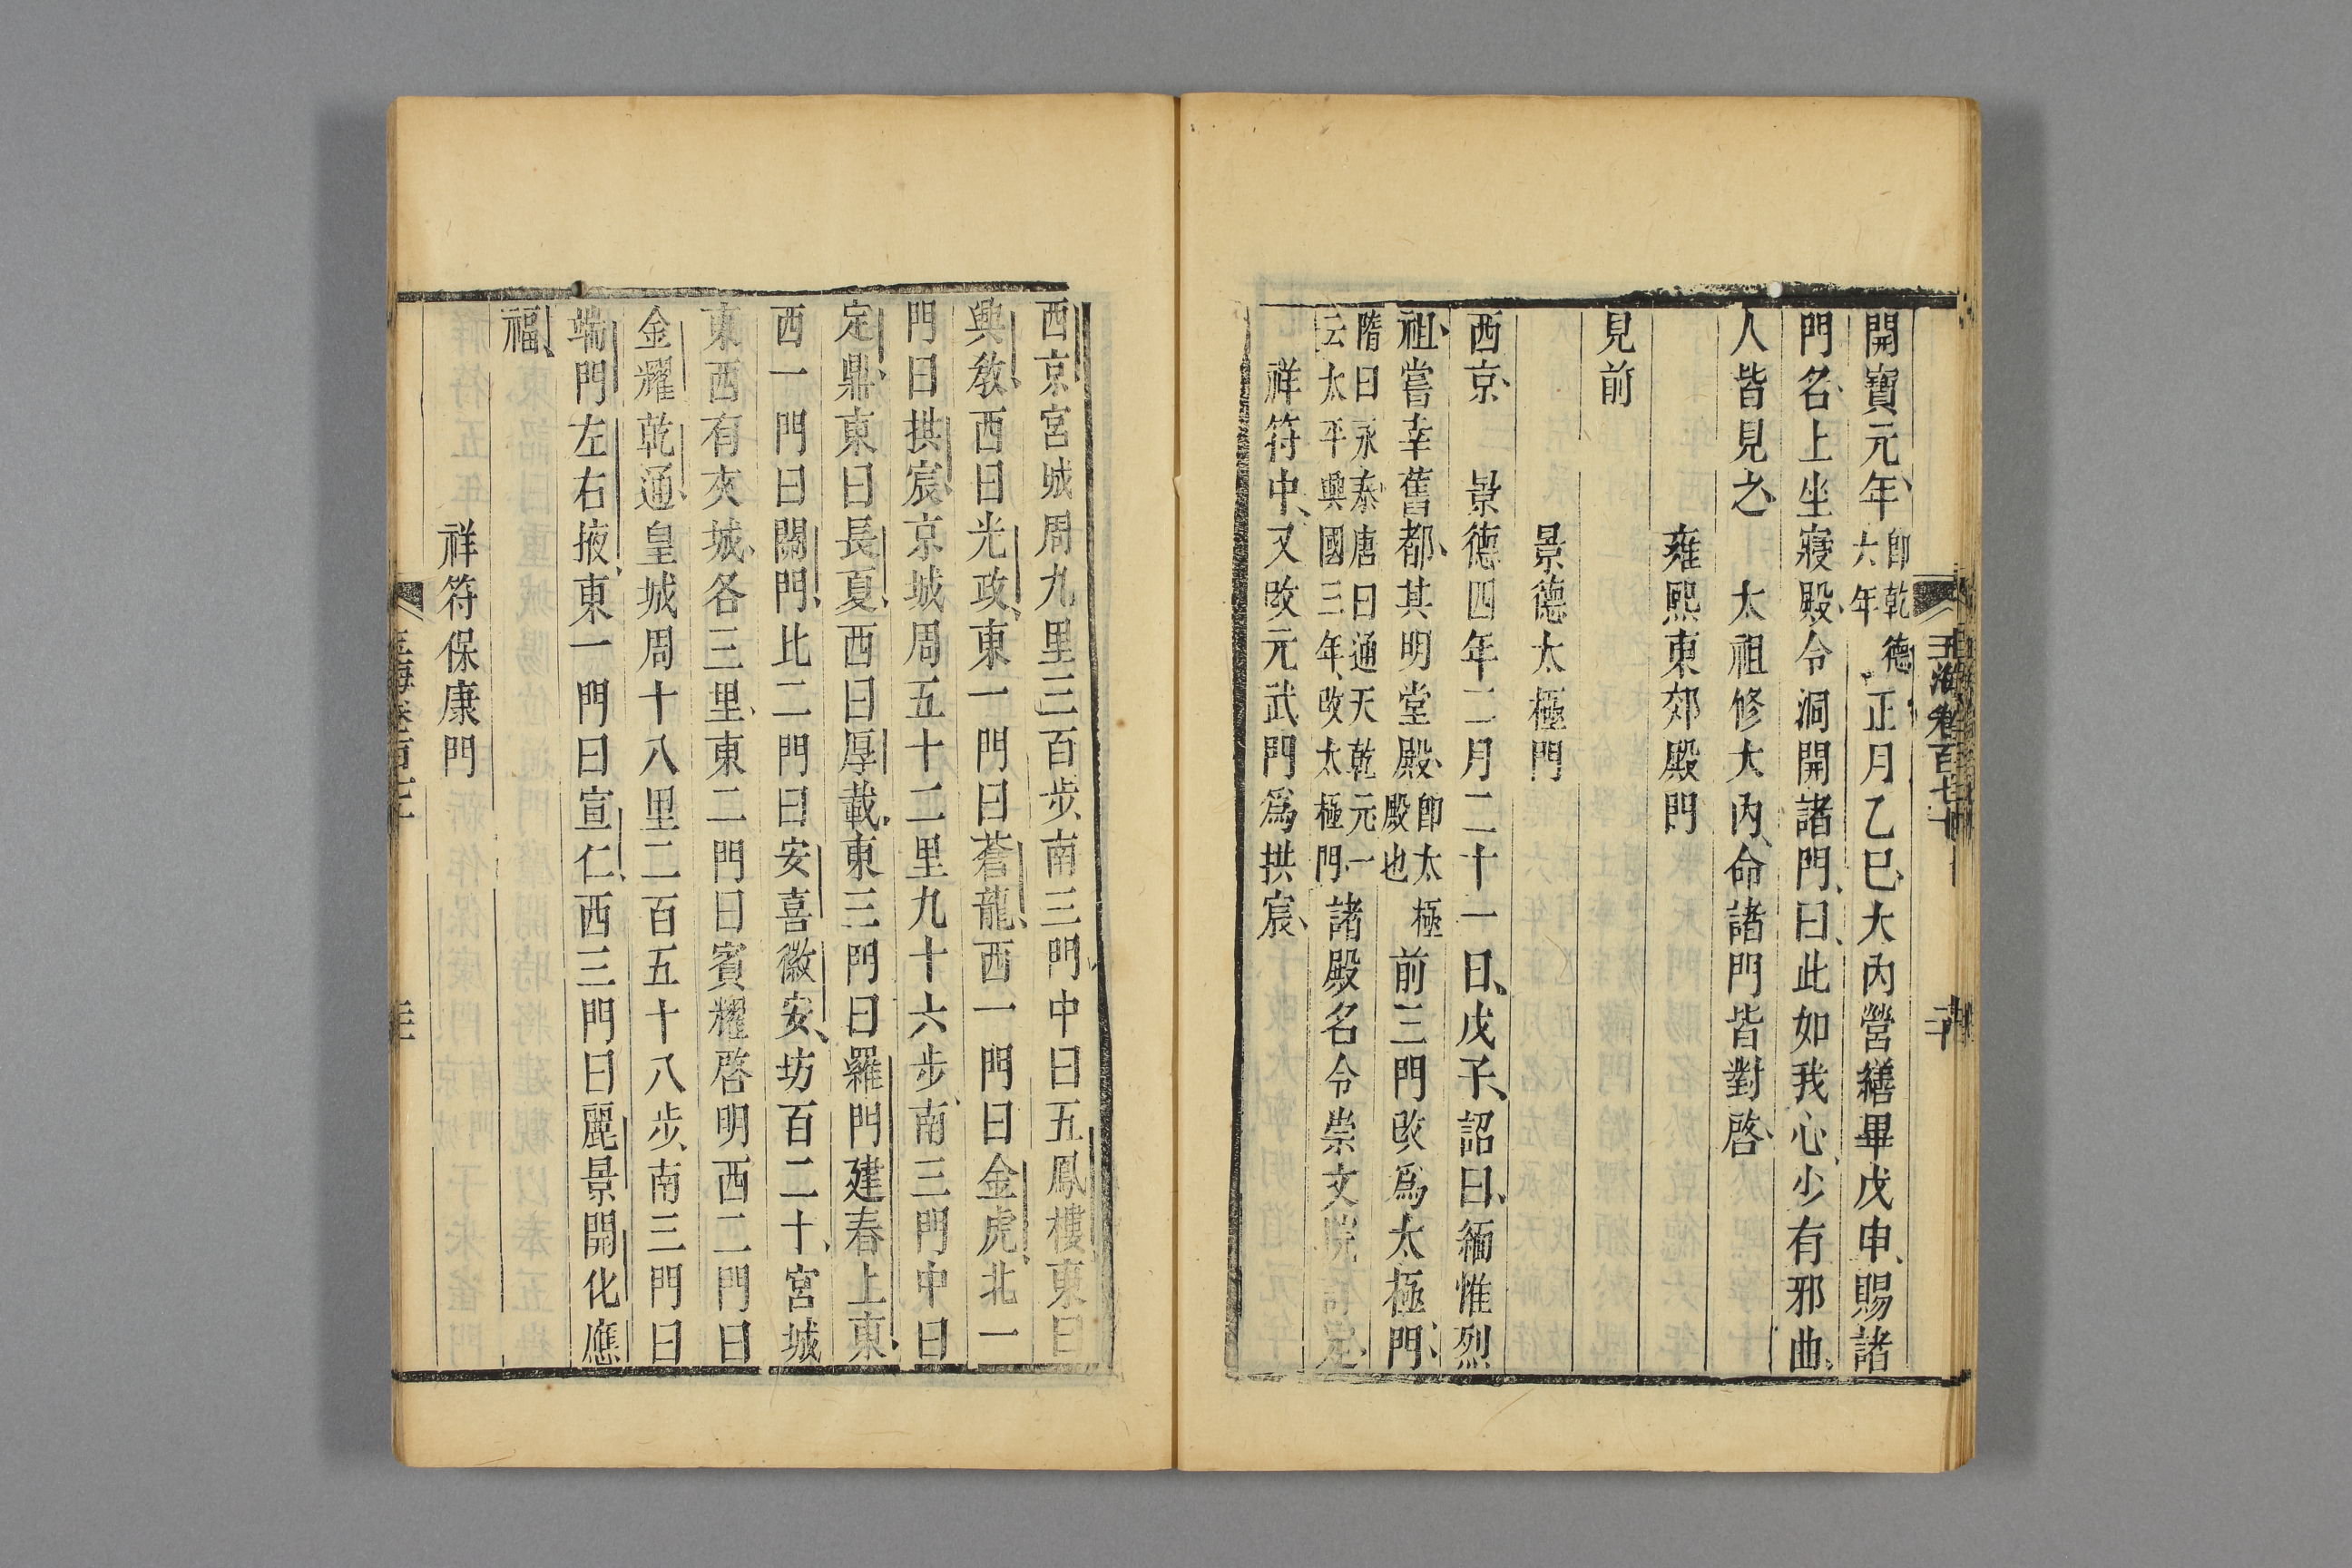 開寶元年即乾德六年正月乙巳大內營繕畢戊申賜諸
門名上坐寢殿令洞開諸門曰此如我心少有邪曲
人皆見之 太祖修大內命諸門皆對啓
雍熙東郊殿門
見前
景德太極門
西京 景德四年二月二十一日戊子詔曰緬惟烈
祖嘗幸舊都其明堂殿即太極殿也前三門改爲太極門
隋曰永泰唐曰通天乾元一云太平興國三年改太極門諸殿名令崇文院詳定
祥符中又改元武門爲拱宸
西京宮城周九里三百步南三門中曰五鳳樓東曰
興教西曰光政東一門曰蒼龍西一門曰金虎北一
門曰拱宸京城周五十二里九十六步南三門中曰
定鼎東曰長夏西曰厚載東三門曰羅門建春上東
西一門曰關門比二門曰安喜徽安坊百二十宮城
東西有夾城各三里東二門曰賓耀啓明西二門曰
金耀乾通皇城周十八里二百五十八步南三門曰
端門左右掖東一門曰宣仁西三門曰麗景開化應
福
祥符保康門